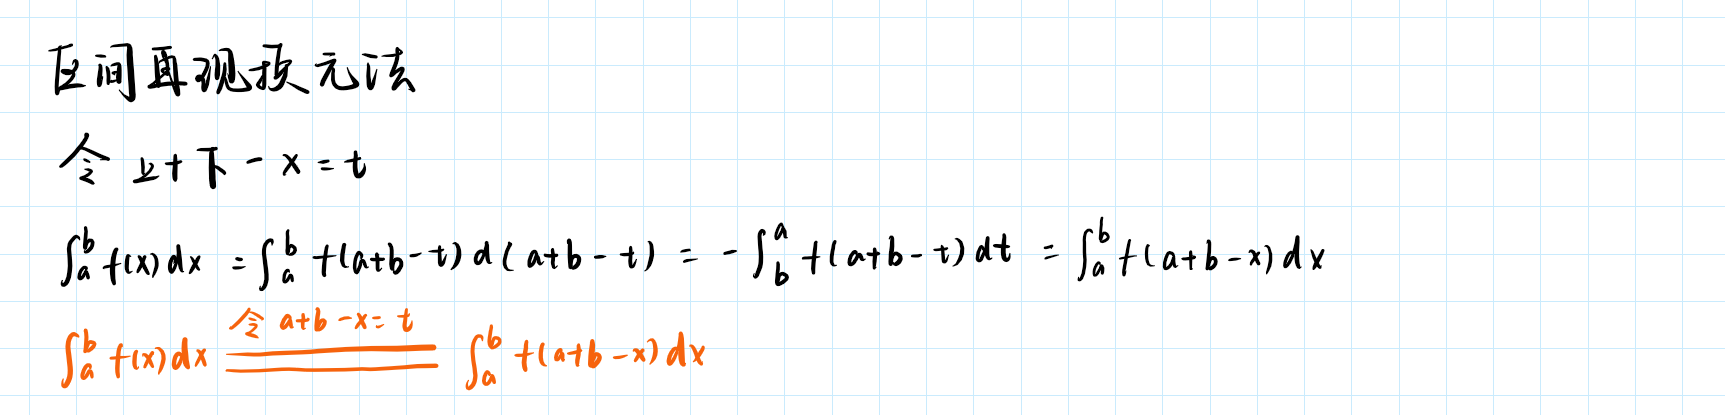 区间再现换元法
令 上+下-x=t
∫_a^b f(x)dx = ∫_a^b f(a+b-t)d(a+b-t) = -∫_b^a f(a+b-t)dt = ∫_a^b f(a+b-x)dx
∫_a^b f(x)dx \xlongequal{令 a+b-x=t} ∫_a^b f(a+b-x)dx